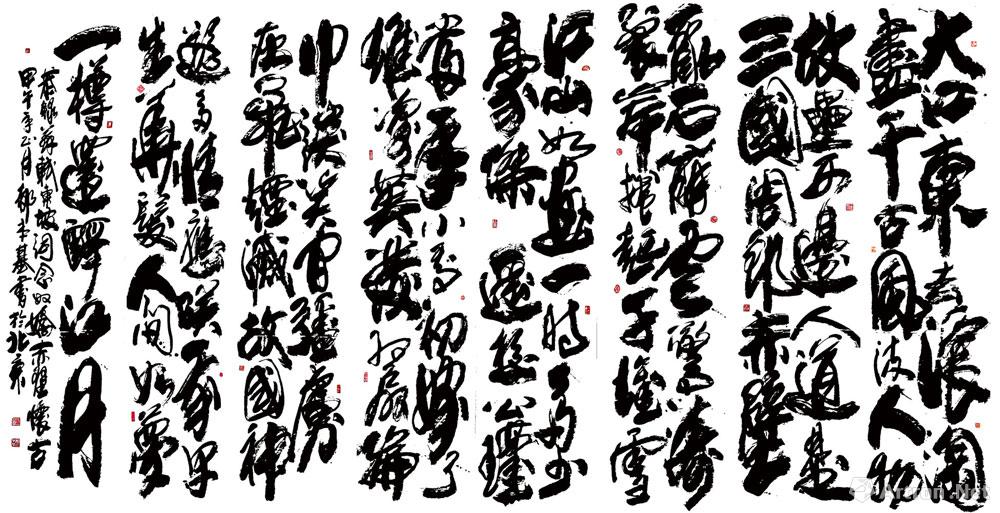 大江東去浪淘
盡千古風流人物
故壘西邊人道是
三國周郎赤壁
亂石崩雲驚濤
裂岸捲起千堆雪
江山如畫一時多少
豪傑遥想公瑾
當年小喬初嫁了
雄姿英發羽扇綸
巾談笑間強虜
灰飛煙滅故國神
遊多情應笑我早
生華髮人間如夢
一樽還酹江月
蘇軾東坡詞念奴嬌赤壁懷古
甲午年正月 書於北京
Artron.Net